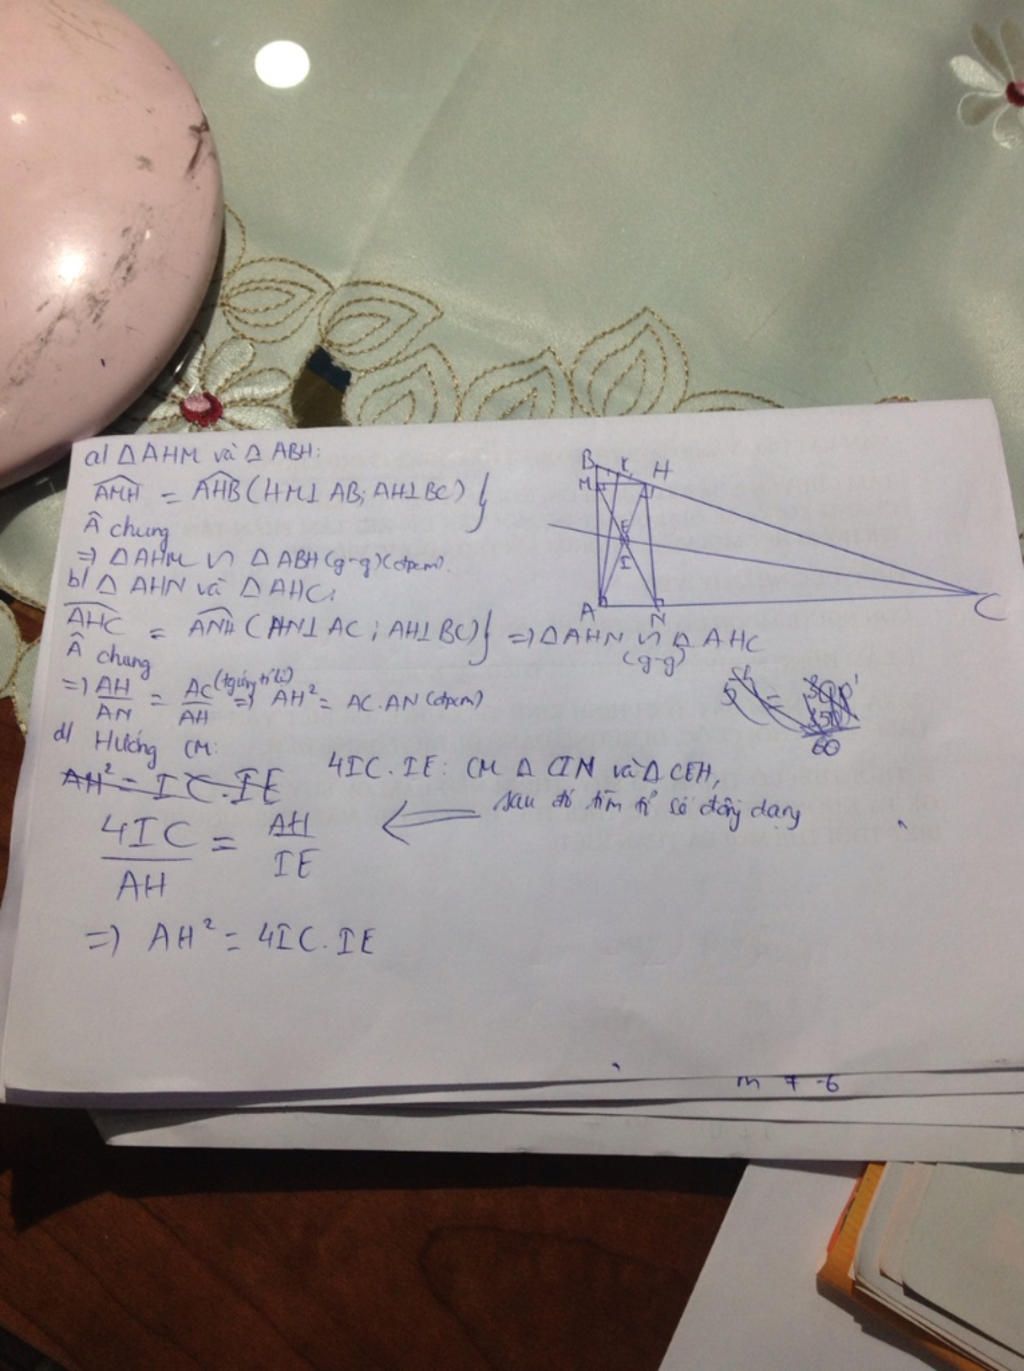 a) △AHM và △ABH:
AMH = AHB (HM⊥AB; AH⊥BC) }
Â chung
=> △AHM ∽ △ABH (g-g) (đpcm).
b) △AHN và △AHC:
AHC = ANH (HN⊥AC; AH⊥BC) } => △AHN ∽ △AHC
Â chung (g-g)
=> AH/AN = AC/AH (tg ứng tỉ lệ) => AH² = AC.AN (đpcm)
d) Hướng CM:
AH² = IC.IE
4IC.IE: CM △CIN và △CEH,
sau đó tìm tỉ số đồng dạng
4IC/AH = AH/IE <=
=> AH² = 4IC.IE
B K H
M
E
I
A N C
60
m ≠ -6